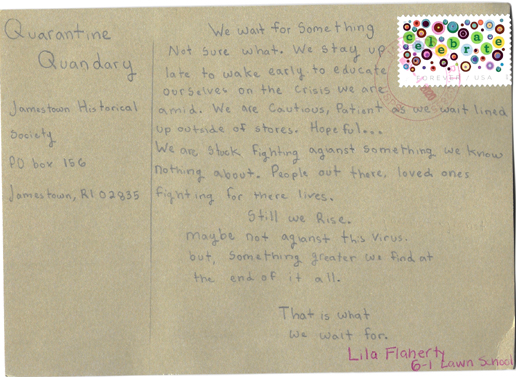 Quarantine
Quandary
Jamestown Historical
Society
PO box 156
Jamestown, RI 02835
We wait for Something
Not sure what. We stay up
late to wake early to educate
ourselves on the Crisis we are
amid. We are Cautious, Patient as we wait lined
up outside of stores. Hopeful...
We are stuck fighting against something we know
nothing about. People out there, loved ones
fighting for there lives.
Still we Rise.
maybe not against this virus.
but, Something greater we find at
the end of it all.
That is what
we wait for.
Lila Flaherty
6-1 Lawn School
celebrate
FOREVER / USA